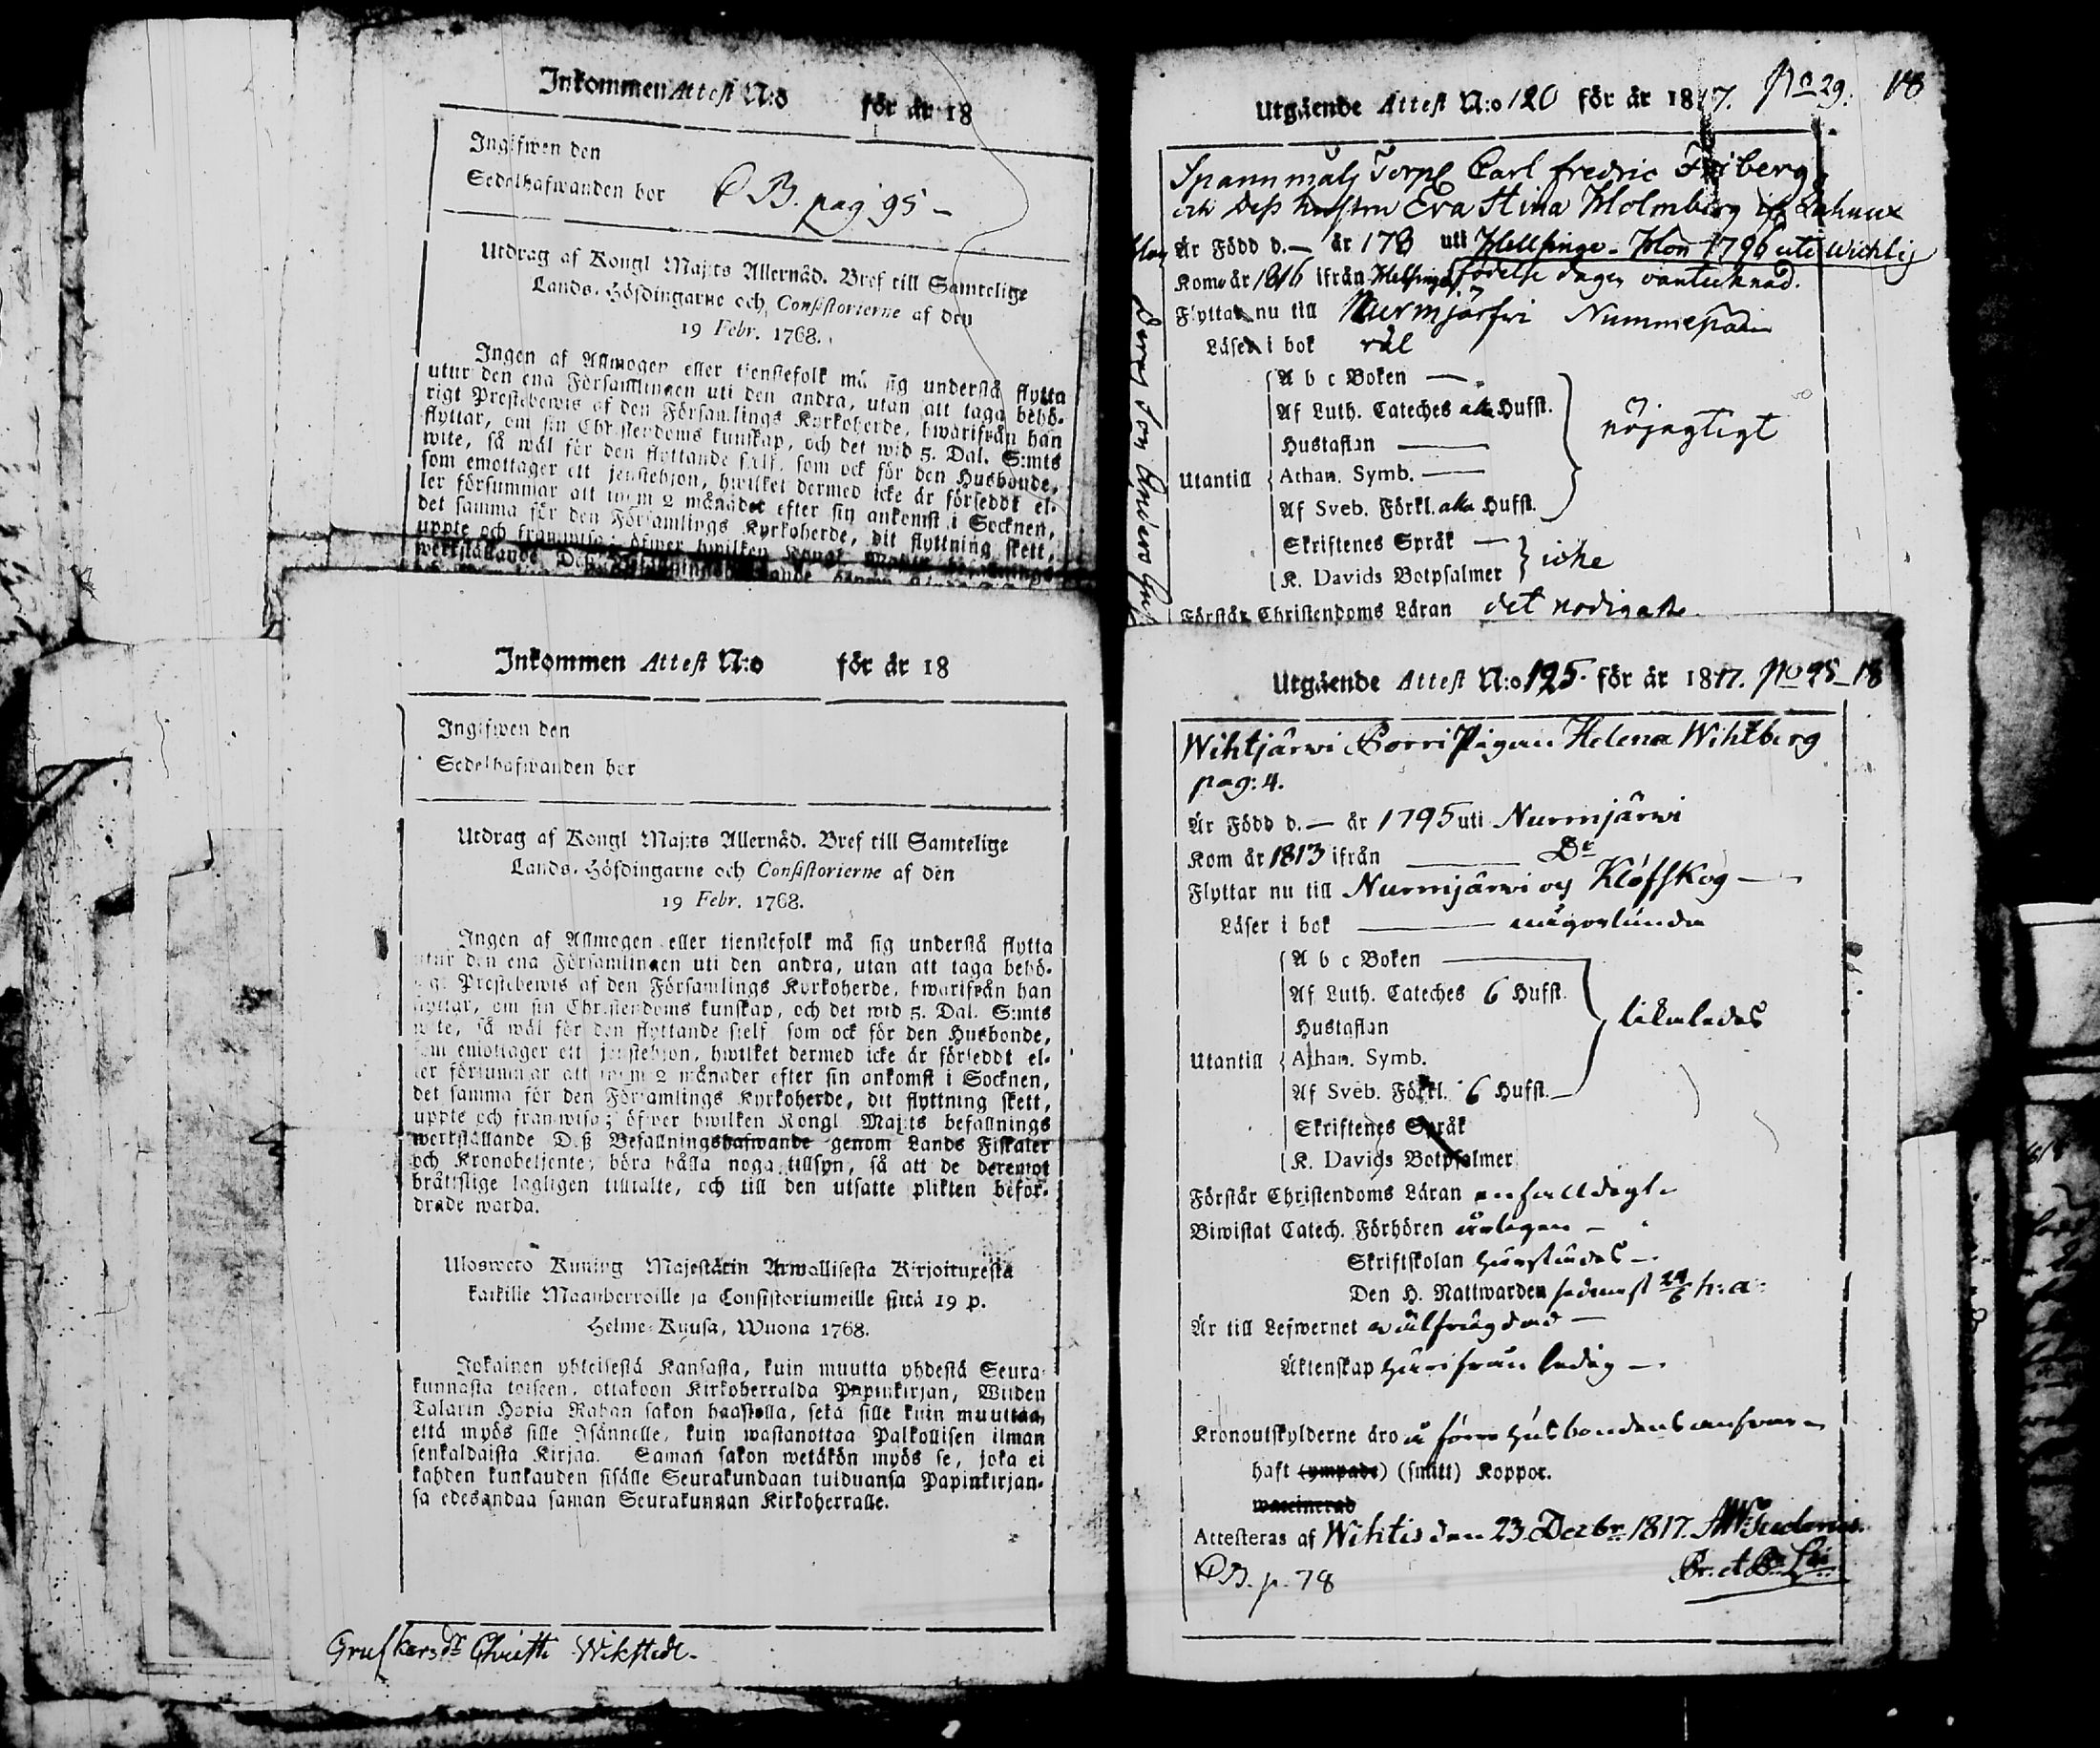 Inkommen Attest N:o för år 18
Ingifwen den
Sedelhafwanden bor C B. pag 95 –
Utdrag af Kongl Maj:ts Allernåd. Bref till Samtelige
Lands-Höfdingarne och Consistorierne af den
19 Febr. 1768.
Ingen af Allmogen eller tienstefolk må sig understå flytta
utur den ena Församlingen uti den andra, utan att taga behö-
rigt Prestebewis af den Församlings Kyrkoherde, hwarifrån han
flyttar, om sin Christendoms kunskap, och det wid 5. Dal. S:mts
wite, så wäl för den flyttande sielf, som ock för den Husbonde,
som emottager ett jenstehjon, hwilket dermed icke är försedt el-
ler försummar att inom 2 månader efter sin ankomst i Socknen,
det samma för den Församlings Kyrkoherde, dit flyttning skett,
uppte och framwisa; öfwer hwilken Kongl Maj:ts befallnings
werkställande Deß
Inkommen Attest N:o för år 18
Ingifwen den
Sedelhafwanden bor
Utdrag af Kongl Maj:ts Allernåd. Bref till Samtelige
Lands-Höfdingarne och Consistorierne af den
19 Febr. 1768.
Ingen af Allmogen eller tienstefolk må sig understå flytta
utur den ena Församlingen uti den andra, utan att taga behö-
rigt Prestebewis af den Församlings Kyrkoherde, hwarifrån han
flyttar, om sin Christendoms kunskap, och det wid 5. Dal. S:mts
wite, så wäl för den flyttande sielf som ock för den Husbonde,
som emottager ett jenstehjon, hwilket dermed icke är försedt el-
ler försummar att inom 2 månader efter sin ankomst i Socknen,
det samma för den Församlings Kyrkoherde, dit flyttning skett,
uppte och framwisa; öfwer hwilken Kongl Maj:ts befallnings
werkställande Deß Befallningshafwande genom Lands Fiskaler
och Kronobetjente, böra hålla noga tillsyn, så att de deremot
bråttslige lagligen tilltalte, och till den utsatte plikten beför-
drade warda.
Ulosweto Kuning Majestätin Armallisesta Kirjoituxesta
kaikille Maanherroille ja Consistoriumeille siitä 19 p.
Helme-Kuusa, Wuona 1768.
Jokainen yhteisestä Kansasta, kuin muutta yhdestä Seura-
kunnasta toiseen, ottakoon Kirkoherralda Papinkirjan, Wiiden
Talarin Hopia Rahan sakon haastolla, sekä sille kuin muuttaa,
että myös sille Isännelle, kuin wastanottaa Palkollisen ilman
senkaldaista Kirjaa. Saman sakon wetäkön myös se, joka ei
kahden kunkauden sisälle Seurakundaan tulduansa Papinkirjan-
sa edesandaa saman Seurakunnan Kirkoherralle.
Christi Wikstedt.
Utgående Attest N:o 120 för år 1817. No 29. 18
Spannmåls Torp Carl Fredric Friberg
och dess hustru Eva Stina Holmberg
Är Född d. — år 178 uti Helsinge. Hon 1796 uti Wichtis
Kom år 1816 ifrån Helsinge födelse dagen oantecknad.
Flytta nu till Nurmjärfvi Nummepää
Läser i bok väl
A b c Boken —
Af Luth. Cateches alla Hufst.
Hustaflan —
Utantill Athan. Symb. —
Af Sveb. Förkl. alla Hufst.
nöjagtigt
Skriftenes Språk —
K. Davids Botpsalmer icke
Förstår Christendoms Läran det nodigaste
Utgående Attest N:o 125. för år 1817. No 98 – 18
Wihtjärwi Sorri Pigan Helena Wihtberg
pag: 4.
Är Född d. — år 1795 uti Nurmjärwi
Kom år 1813 ifrån — Do
Flyttar nu till Nurmijärwi oc Klöfskog —
Läser i bok — någorlunda
A b c Boken —
Af Luth. Cateches 6 Hufst.
Hustaflan
Utantill Athan. Symb.
Af Sveb. Förkl. 6 Hufst. —
likaledes
Skriftenes Språk
K. Davids Botpsalmer
Förstår Christendoms Läran enfalldigt
Biwistat Catech. Förhören årligen —
Skriftskolan —
Den H. Nattwarden sednast 24/6 h: a:
Är till Lefwernet wälfrägdad —
Äktenskap härifrån ledig —
Kronoutskylderne äro under husbondens answar
haft (ympade) (smitt) Koppor.
waccinerad
Attesteras af Wihtis den 23 Decbr 1817.
C B. p. 78